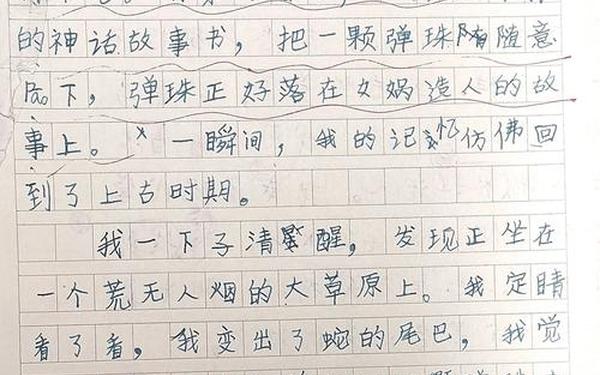 的神话故事书，把一颗弹珠随随意
下，弹珠正好落在女娲造人的故
事上。一瞬间，我的记忆仿佛回
到了上古时期。
我一下子清醒，发现正坐在
一个荒无人烟的大草原上。我定睛
看了看，我变出了蛇的尾巴，我觉